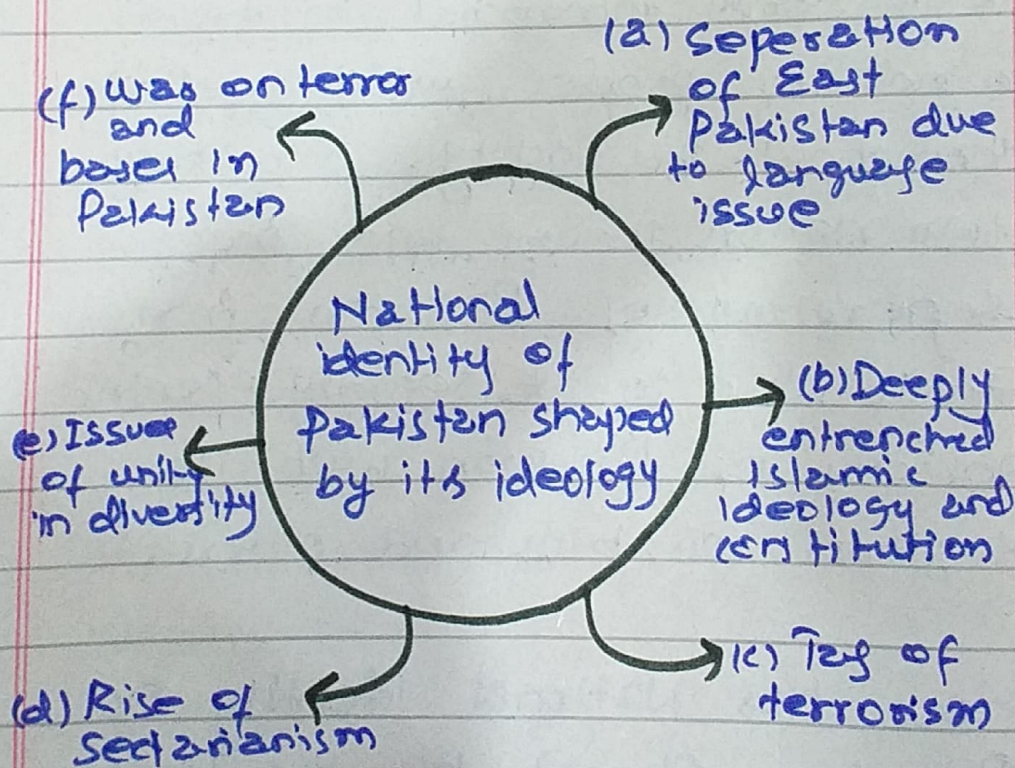 National
identity of
Pakistan shaped
by its ideology
(a) Seperation
of East
Pakistan due
to language
issue
(b) Deeply
entrenched
Islamic
ideology and
constitution
(c) Tag of
terrorism
(d) Rise of
Sectarianism
(e) Issues
of unity
in diversity
(f) War on terror
and
bases in
Pakistan